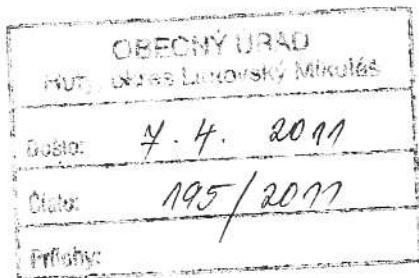 OBECNÝ ÚRAD
Huty, okres Liptovský Mikuláš
Došlo: 7. 4. 2011
Číslo: 195/2011
Prílohy: